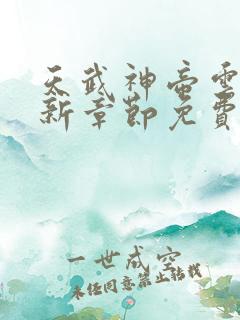 天武神帝雲
新章節免費
一世成空
未經同意禁止轉載